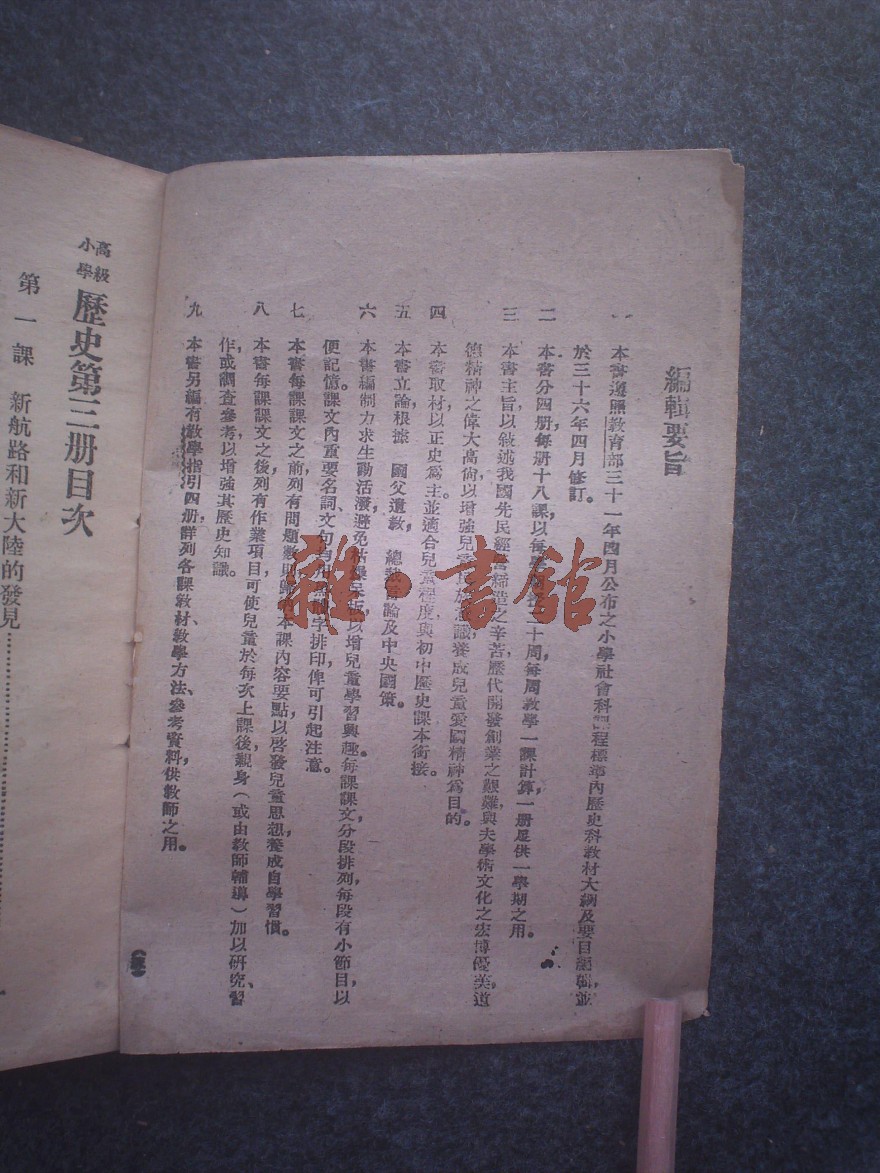 編輯要旨
一 本書遵照教育部三十一年四月公布之小學社會科課程標準內歷史科教材大綱及要目編輯，並
於三十六年四月修訂。
二 本書分四册，每册十八課，以每學期二十周，每周教學一課計算，一册足供一學期之用。
三 本書主旨以敘述我國先民經營締造之辛苦，歷代開發創業之艱難，與夫學術文化之宏博優美，道
德精神之偉大高尚，以增強兒童民族意識，養成兒童愛國精神爲目的。
四 本書取材以正史爲主，並適合兒童程度，與初中歷史課本銜接。
五 本書立論根據 國父遺教、 總裁言論及中央國策。
六 本書編制力求生動活潑，避免枯燥呆板，以增兒童學習興趣。每課課文分段排列，每段有小節目，以
便記憶。課文內重要名詞、文句 排印，俾可引起注意。
七 本書每課課文之前，列有問題數則，歸納本課內容要點，以啓發兒童思想，養成自學習慣。
八 本書每課課文之後，列有作業項目，可使兒童於每次上課後，親身（或由教師輔導）加以研究、習
作或調查參考，以增強其歷史知識。
九 本書另編有教學指引四册，詳列各課教材、教學方法、參考資料，供教師之用。
高級
小學
歷史第三册目次
第一課 新航路和新大陸的發見
雜·書館